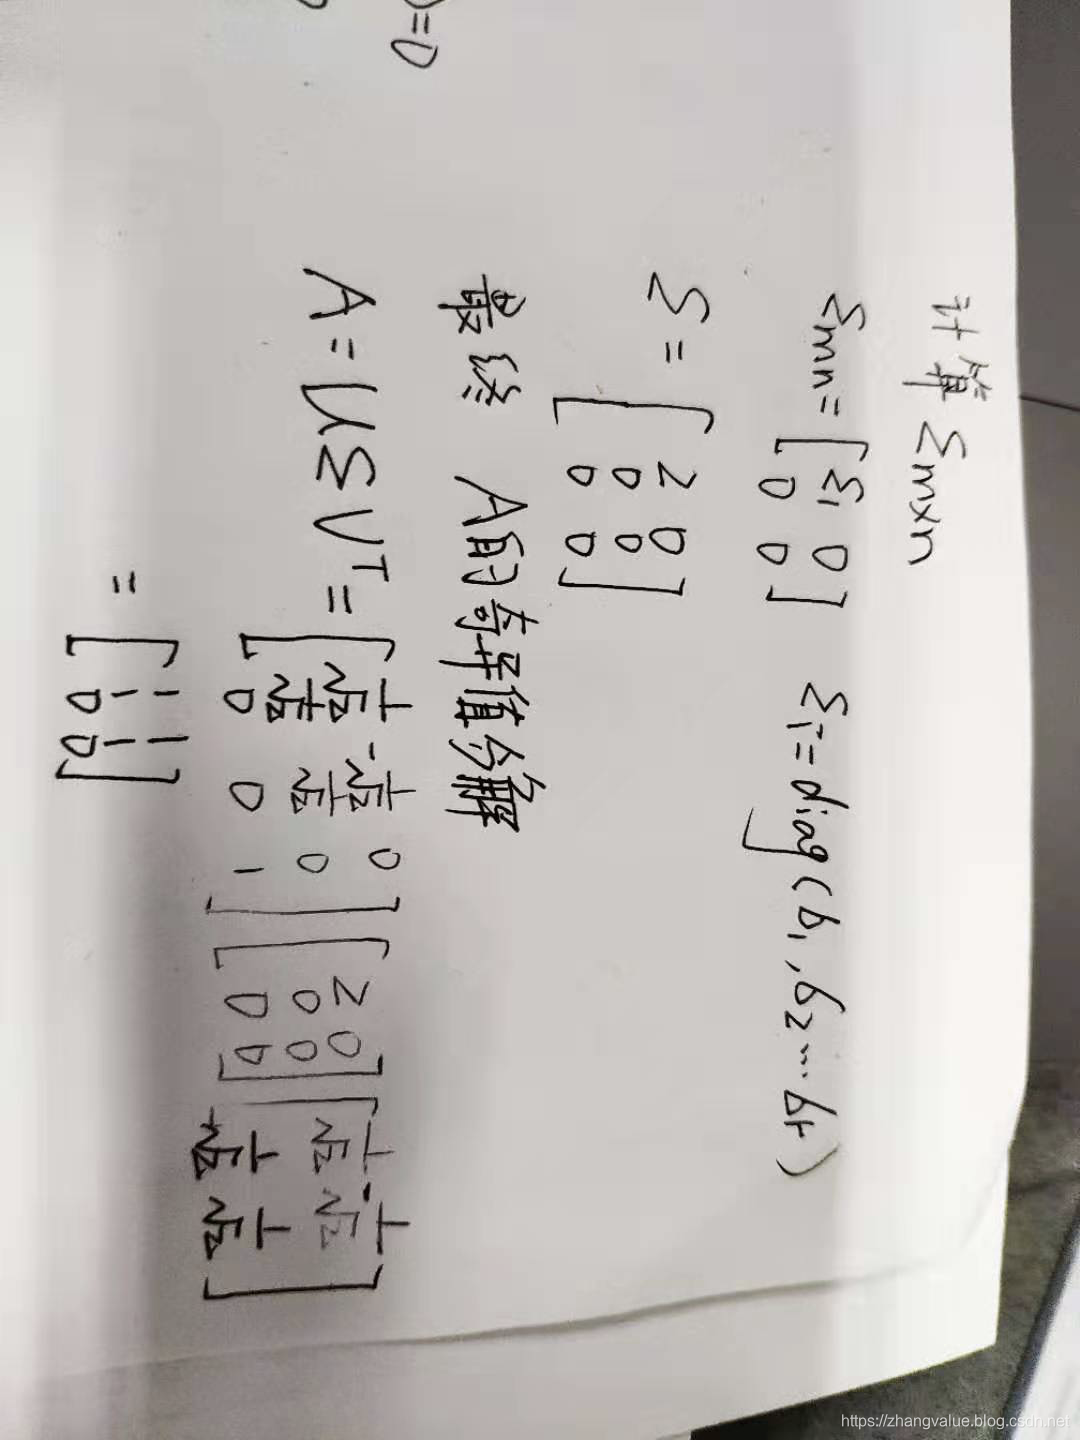 =0
计算 Σmxn
Σmn = [Σ1 0
0 0] Σ1 = diag(б1, б2 ... бr)
Σ = [2 0
0 0
0 0]
最终 A的奇异值分解
A = UΣV^T = [1/√2 -1/√2 0
1/√2 1/√2 0
0 0 1] [2 0
0 0
0 0] [1/√2 -1/√2
1/√2 1/√2]
= [1 1
1 1
0 0]
https://zhangvalue.blog.csdn.net